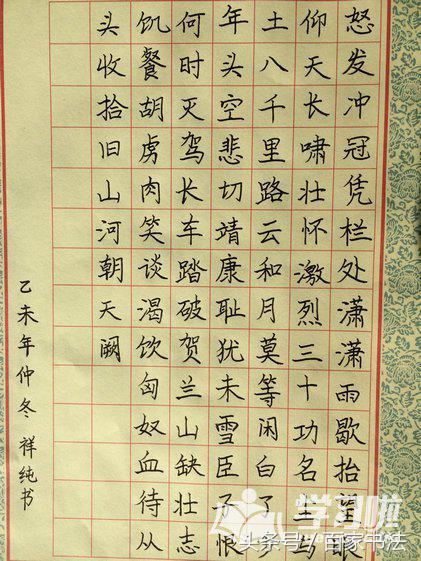 怒发冲冠凭栏处潇潇雨歇抬望眼
仰天长啸壮怀激烈三十功名尘与
土八千里路云和月莫等闲白了
年头空悲切靖康耻犹未雪臣子恨
何时灭驾长车踏破贺兰山缺壮志
饥餐胡虏肉笑谈渴饮匈奴血待从
头收拾旧山河朝天阙
乙未年仲冬 祥纯书
学习啦
头条号 / 百家书法